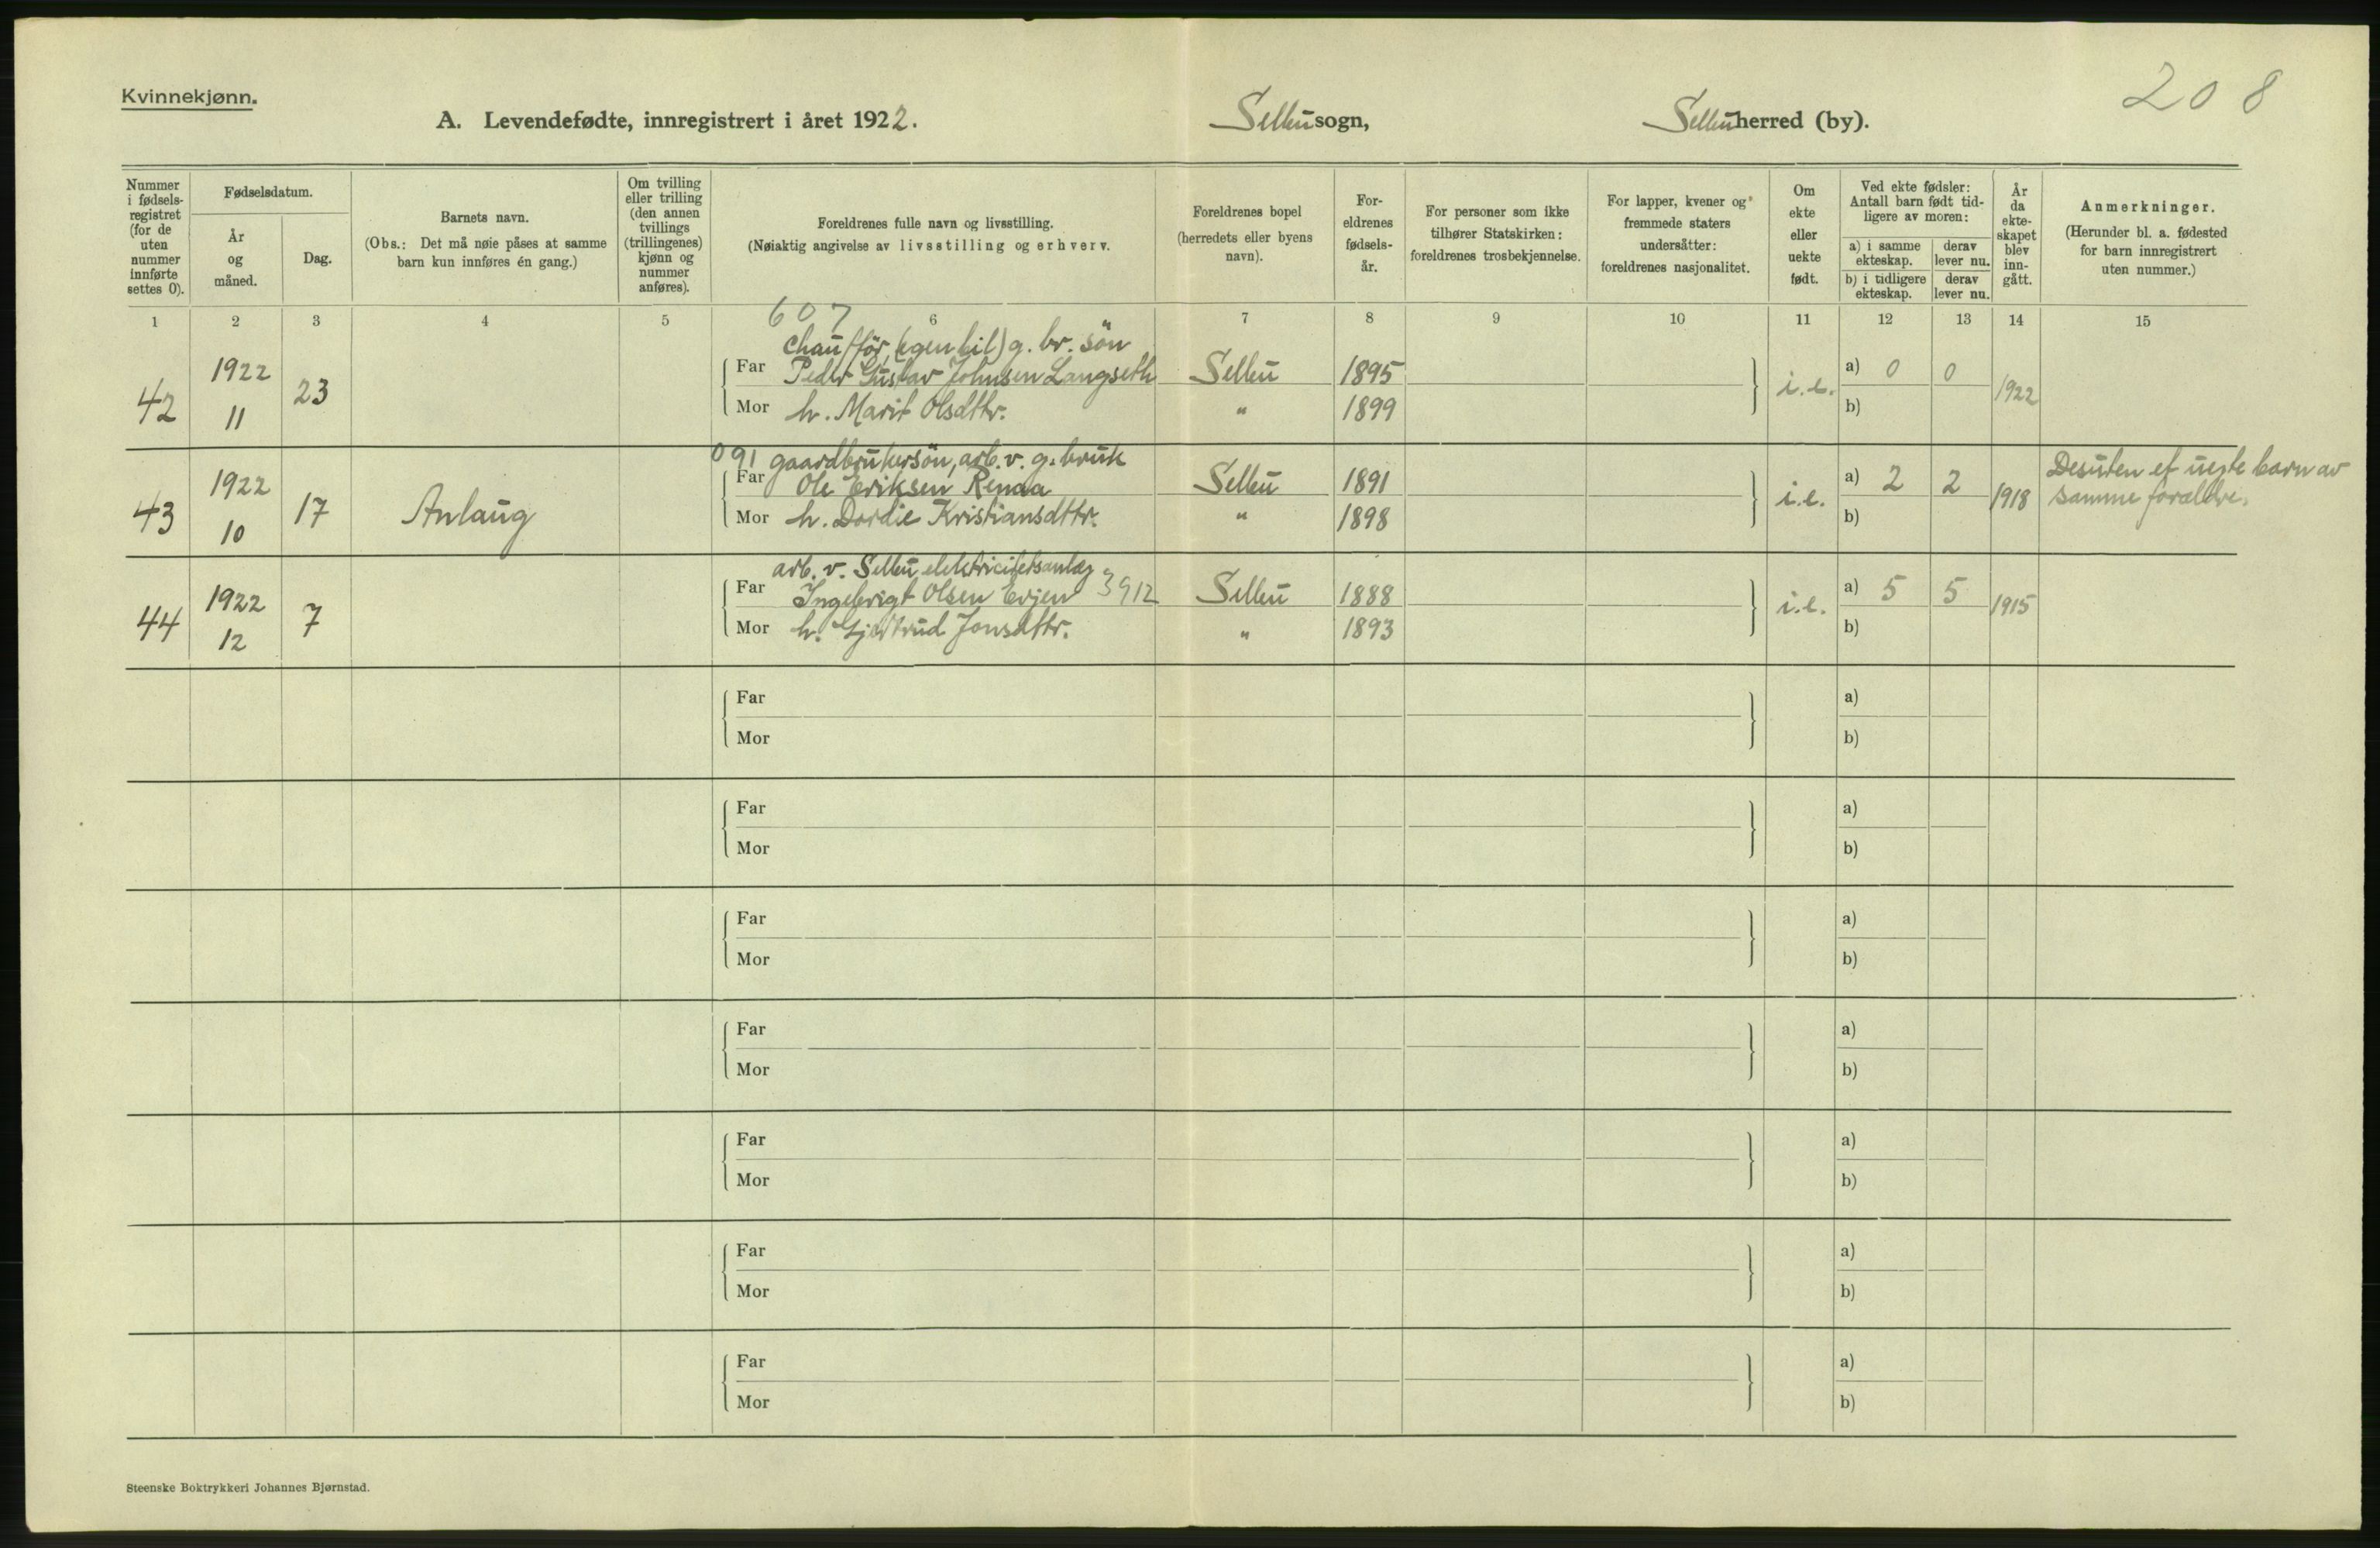 Kvinnekjønn.
208
A. Levendefødte, innregistrert i året 1922. Selbu sogn, Selbu herred (by).
Nummer i fødsels-registret (for de uten nummer innførte settes 0).
Fødselsdatum.
År og måned.
Dag.
Barnets navn.
(Obs.: Det må nøie påses at samme barn kun innføres én gang.)
Om tvilling eller trilling (den annen tvillings (trillingenes) kjønn og nummer anføres).
Foreldrenes fulle navn og livsstilling.
(Nøiaktig angivelse av livsstilling og erhverv.
Foreldrenes bopel (herredets eller byens navn).
For-eldrenes fødsels-år.
For personer som ikke tilhører Statskirken: foreldrenes trosbekjennelse.
For lapper, kvener og fremmede staters undersåtter: foreldrenes nasjonalitet.
Om ekte eller uekte født.
Ved ekte fødsler: Antall barn født tid-ligere av moren:
a) i samme ekteskap. derav lever nu.
b) i tidligere ekteskap. derav lever nu.
År da ekte-skapet blev inn-gått.
Anmerkninger.
(Herunder bl. a. fødested for barn innregistrert uten nummer.)
1 2 3 4 5 6 7 8 9 10 11 12 13 14 15
607
chaufför, (egen bil) g. br. sön
42 1922 11 23 Far Peder Gustav Johnsen Langseth Selbu 1895 i.e. a) 0 0 1922
Mor h. Marit Olsdttr. " 1899 b)
091 gaardbrukersön, arb. v. g. bruk
43 1922 10 17 Anlaug Far Ole Eriksen Renaa Selbu 1891 i.e. a) 2 2 1918 Desuten et uegte barn av
Mor h. Dordie Kristiansdttr. " 1898 b) samme forældre.
arb. v. Selbu elektricitetsanlæg
44 1922 12 7 Far Ingebrigt Olsen Evjen 3912 Selbu 1888 i.e. a) 5 5 1915
Mor h. Gjertrud Jonsdttr. " 1893 b)
Far a)
Mor b)
Far a)
Mor b)
Far a)
Mor b)
Far a)
Mor b)
Far a)
Mor b)
Far a)
Mor b)
Far a)
Mor b)
Steenske Boktrykkeri Johannes Bjørnstad.